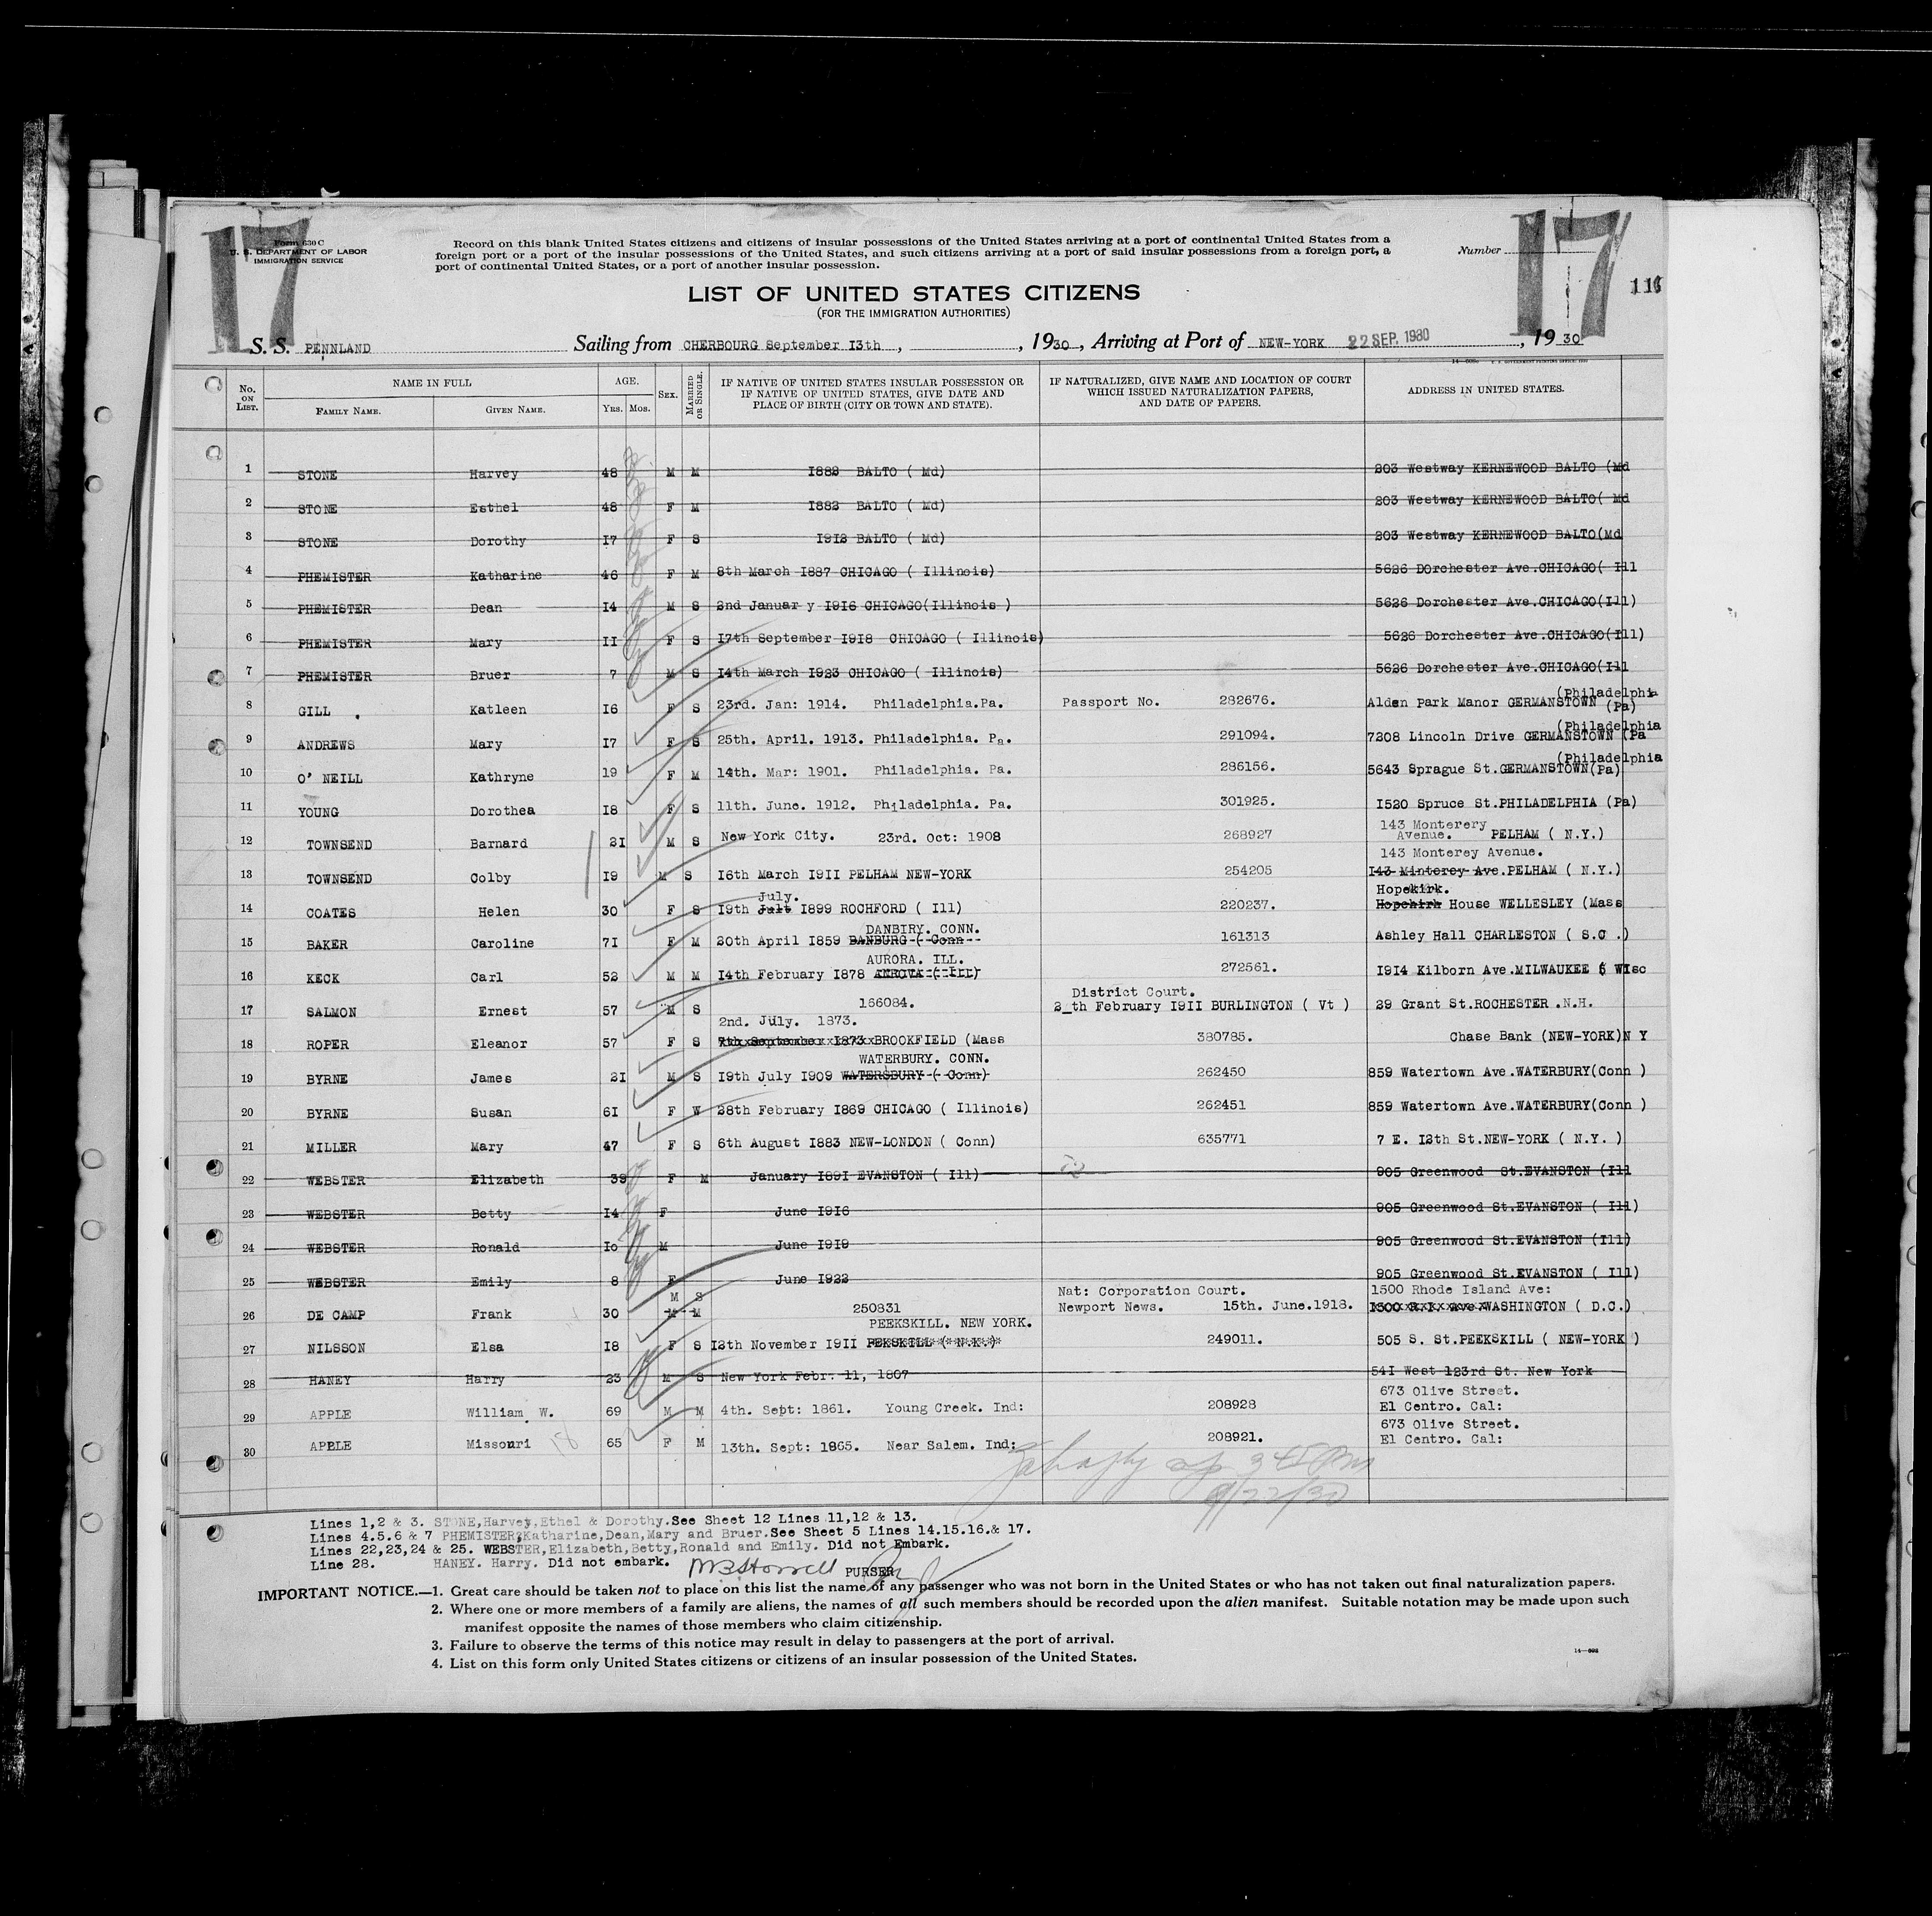 17
17
Form 630 C
U. S. DEPARTMENT OF LABOR
IMMIGRATION SERVICE
Record on this blank United States citizens and citizens of insular possessions of the United States arriving at a port of continental United States from a
foreign port or a port of the insular possessions of the United States, and such citizens arriving at a port of said insular possessions from a foreign port, a
port of continental United States, or a port of another insular possession.
Number
LIST OF UNITED STATES CITIZENS
(FOR THE IMMIGRATION AUTHORITIES)
S. S. PENNLAND Sailing from CHERBOURG September I3th , , 1930 , Arriving at Port of NEW-YORK 22 SEP. 1930 , 19 30
No. ON LIST. NAME IN FULL FAMILY NAME. GIVEN NAME. AGE. Yrs. Mos. SEX. MARRIED OR SINGLE. IF NATIVE OF UNITED STATES INSULAR POSSESSION OR IF NATIVE OF UNITED STATES, GIVE DATE AND PLACE OF BIRTH (CITY OR TOWN AND STATE). IF NATURALIZED, GIVE NAME AND LOCATION OF COURT WHICH ISSUED NATURALIZATION PAPERS, AND DATE OF PAPERS. ADDRESS IN UNITED STATES.
1 STONE Harvey 48 M M I882 BALTO ( Md) 203 Westway KERNEWOOD BALTO (Md
2 STONE Esthel 48 F M I882 BALTO ( Md) 203 Westway KERNEWOOD BALTO( Md
3 STONE Dorothy I7 F S I9I2 BALTO ( Md) 203 Westway KERNEWOOD BALTO(Md
4 PHEMISTER Katharine 46 F M 8th March I887 CHICAGO ( Illinois) 5626 DOrchester Ave.CHICAGO( Ill
5 PHEMISTER Dean I4 M S 2nd Januar y I9I6 CHICAGO(Illinois ) 5626 Dorchester Ave.CHICAGO(Ill)
6 PHEMISTER Mary II F S I7th September I9I8 CHICAGO ( Illinois) 5626 Dorchester Ave.CHICAGO(Ill)
7 PHEMISTER Bruer 7 M S I4th March I923 CHICAGO ( Illinois) 5626 Dorchester Ave.CHICAGO(Ill
8 GILL Katleen I6 F S 23rd. Jan: 1914. Philadelphia.Pa. Passport No. 282676. Alden Park Manor GERMANSTOWN (Philadelphia (Pa)
9 ANDREWS Mary I7 F S 25th. April. 1913. Philadelphia. Pa. 291094. 7208 Lincoln Drive GERMANSTOWN (Philadelphia (Pa
10 O' NEILL Kathryne 19 F M 14th. Mar: 1901. Philadelphia. Pa. 286156. 5643 Sprague St.GERMANSTOWN(Pa) (Philadelphia
11 YOUNG Dorothea I8 F S 11th. June. 1912. Philadelphia. Pa. 301925. I520 Spruce St.PHILADELPHIA (Pa)
12 TOWNSEND Barnard 2I M S New York City. 23rd. Oct: 1908 268927 143 Monterery Avenue. PELHAM ( N.Y.)
143 Monterey Avenue.
13 TOWNSEND Colby I9 M S I6th March I9II PELHAM NEW-YORK 254205 I43 Minterey Ave.PELHAM ( N.Y.)
July. Hopekirk.
14 COATES Helen 30 F S I9th Jult I899 ROCHFORD ( Ill) 220237. Hopchirh House WELLESLEY (Mass
DANBIRY. CONN.
15 BAKER Caroline 7I F M 20th April I859 BANBURG ( Conn 161313 Ashley Hall CHARLESTON ( S.C .)
AURORA. ILL.
16 KECK Carl 52 M M I4th February I878 ( Ill) 272561. I9I4 Kilborn Ave.MILWAUKEE ( WIsc
District Court.
17 SALMON Ernest 57 M S 166084. 2_th February I9II BURLINGTON ( Vt ) 29 Grant St.ROCHESTER .N.H.
2nd. July. 1873.
18 ROPER Eleanor 57 F S 7th September I873 BROOKFIELD (Mass 380785. Chase Bank (NEW-YORK)N Y
WATERBURY. CONN.
19 BYRNE James 2I M S I9th July I909 WATERSBURY ( Conn) 262450 859 Watertown Ave.WATERBURY(Conn )
20 BYRNE Susan 6I F W 28th February I869 CHICAGO ( Illinois) 262451 859 Watertown Ave.WATERBURY(Conn )
21 MILLER Mary 47 F S 6th August I883 NEW-LONDON ( Conn) 635771 7 E. I2th St.NEW-YORK ( N.Y. )
22 WEBSTER Elizabeth 39 F M January I89I EVANSTON ( Ill) 905 Greenwood St.EVANSTON (Ill
23 WEBSTER Betty I4 F June I9I6 905 Greenwood St.EVANSTON ( Ill)
24 WEBSTER Ronald Io M June I9I9 905 Greenwood St.EVANSTON (Ill)
25 WEBSTER Emily 8 F June I922 905 Greenwood St.EVANSTON ( Ill)
M S Nat: Corporation Court. 1500 Rhode Island Ave:
26 DE CAMP Frank 30 M M 250831 Newport News. 15th. June.1918. I500 R.I. Ave.WASHINGTON ( D.C.)
PEEKSKILL. NEW YORK.
27 NILSSON Elsa I8 F S I2th November I9II PEKSKILL ( N.K.) 249011. 505 S. St.PEEKSKILL ( NEW-YORK )
28 HANEY Harry 23 M S New York Febr. 11, 1807 54I West 123rd St. New York
673 Olive Street.
29 APPLE William W. 69 M M 4th. Sept: 1861. Young Creek. Ind: 208928 El Centro. Cal:
673 Olive Street.
30 APPLE Missouri 65 F M 13th. Sept: 1865. Near Salem. Ind: 208921. El Centro. Cal:
9/22/30
Lines 1,2 & 3. STONE,Harvey,Ethel & Dorothy.See Sheet 12 Lines 11,12 & 13.
Lines 4.5.6 & 7 PHEMISTER,Katharine,Dean,Mary and Bruer.See Sheet 5 Lines 14.15.16.& 17.
Lines 22,23,24 & 25. WEBSTER,Elizabeth,Betty,Ronald and Emily. Did not Embark.
Line 28. HANEY. Harry. Did not embark.
PURSER
IMPORTANT NOTICE.—1. Great care should be taken not to place on this list the name of any passenger who was not born in the United States or who has not taken out final naturalization papers.
2. Where one or more members of a family are aliens, the names of all such members should be recorded upon the alien manifest. Suitable notation may be made upon such
manifest opposite the names of those members who claim citizenship.
3. Failure to observe the terms of this notice may result in delay to passengers at the port of arrival.
4. List on this form only United States citizens or citizens of an insular possession of the United States.